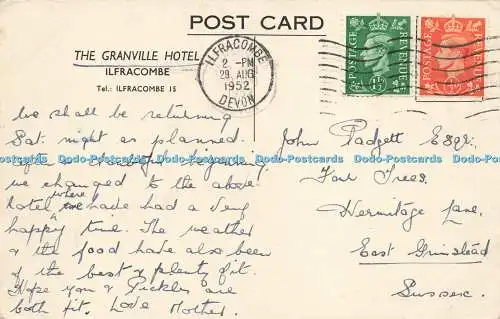 POST CARD
THE GRANVILLE HOTEL
ILFRACOMBE
Tel.: ILFRACOMBE 15
ILFRACOMBE
2 - PM
29 AUG
1952
DEVON
POSTAGE REVENUE
1½D
POSTAGE REVENUE
We shall be returning
Sat. night as planned.
we changed to the above
hotel where we have had a very
happy time. The weather
& the food have also been
of the best & plenty of it.
Hope you & Pickles are
both fit. Love Mother.
John Padgett Esqr.
Four Trees,
Hermitage Lane,
East Grinstead
Sussex.
Dodo-Postcards Dodo-Postcards Dodo-Postcards Dodo-Postcards Dodo-Postcards Dodo-Postcards Dodo-Postcards